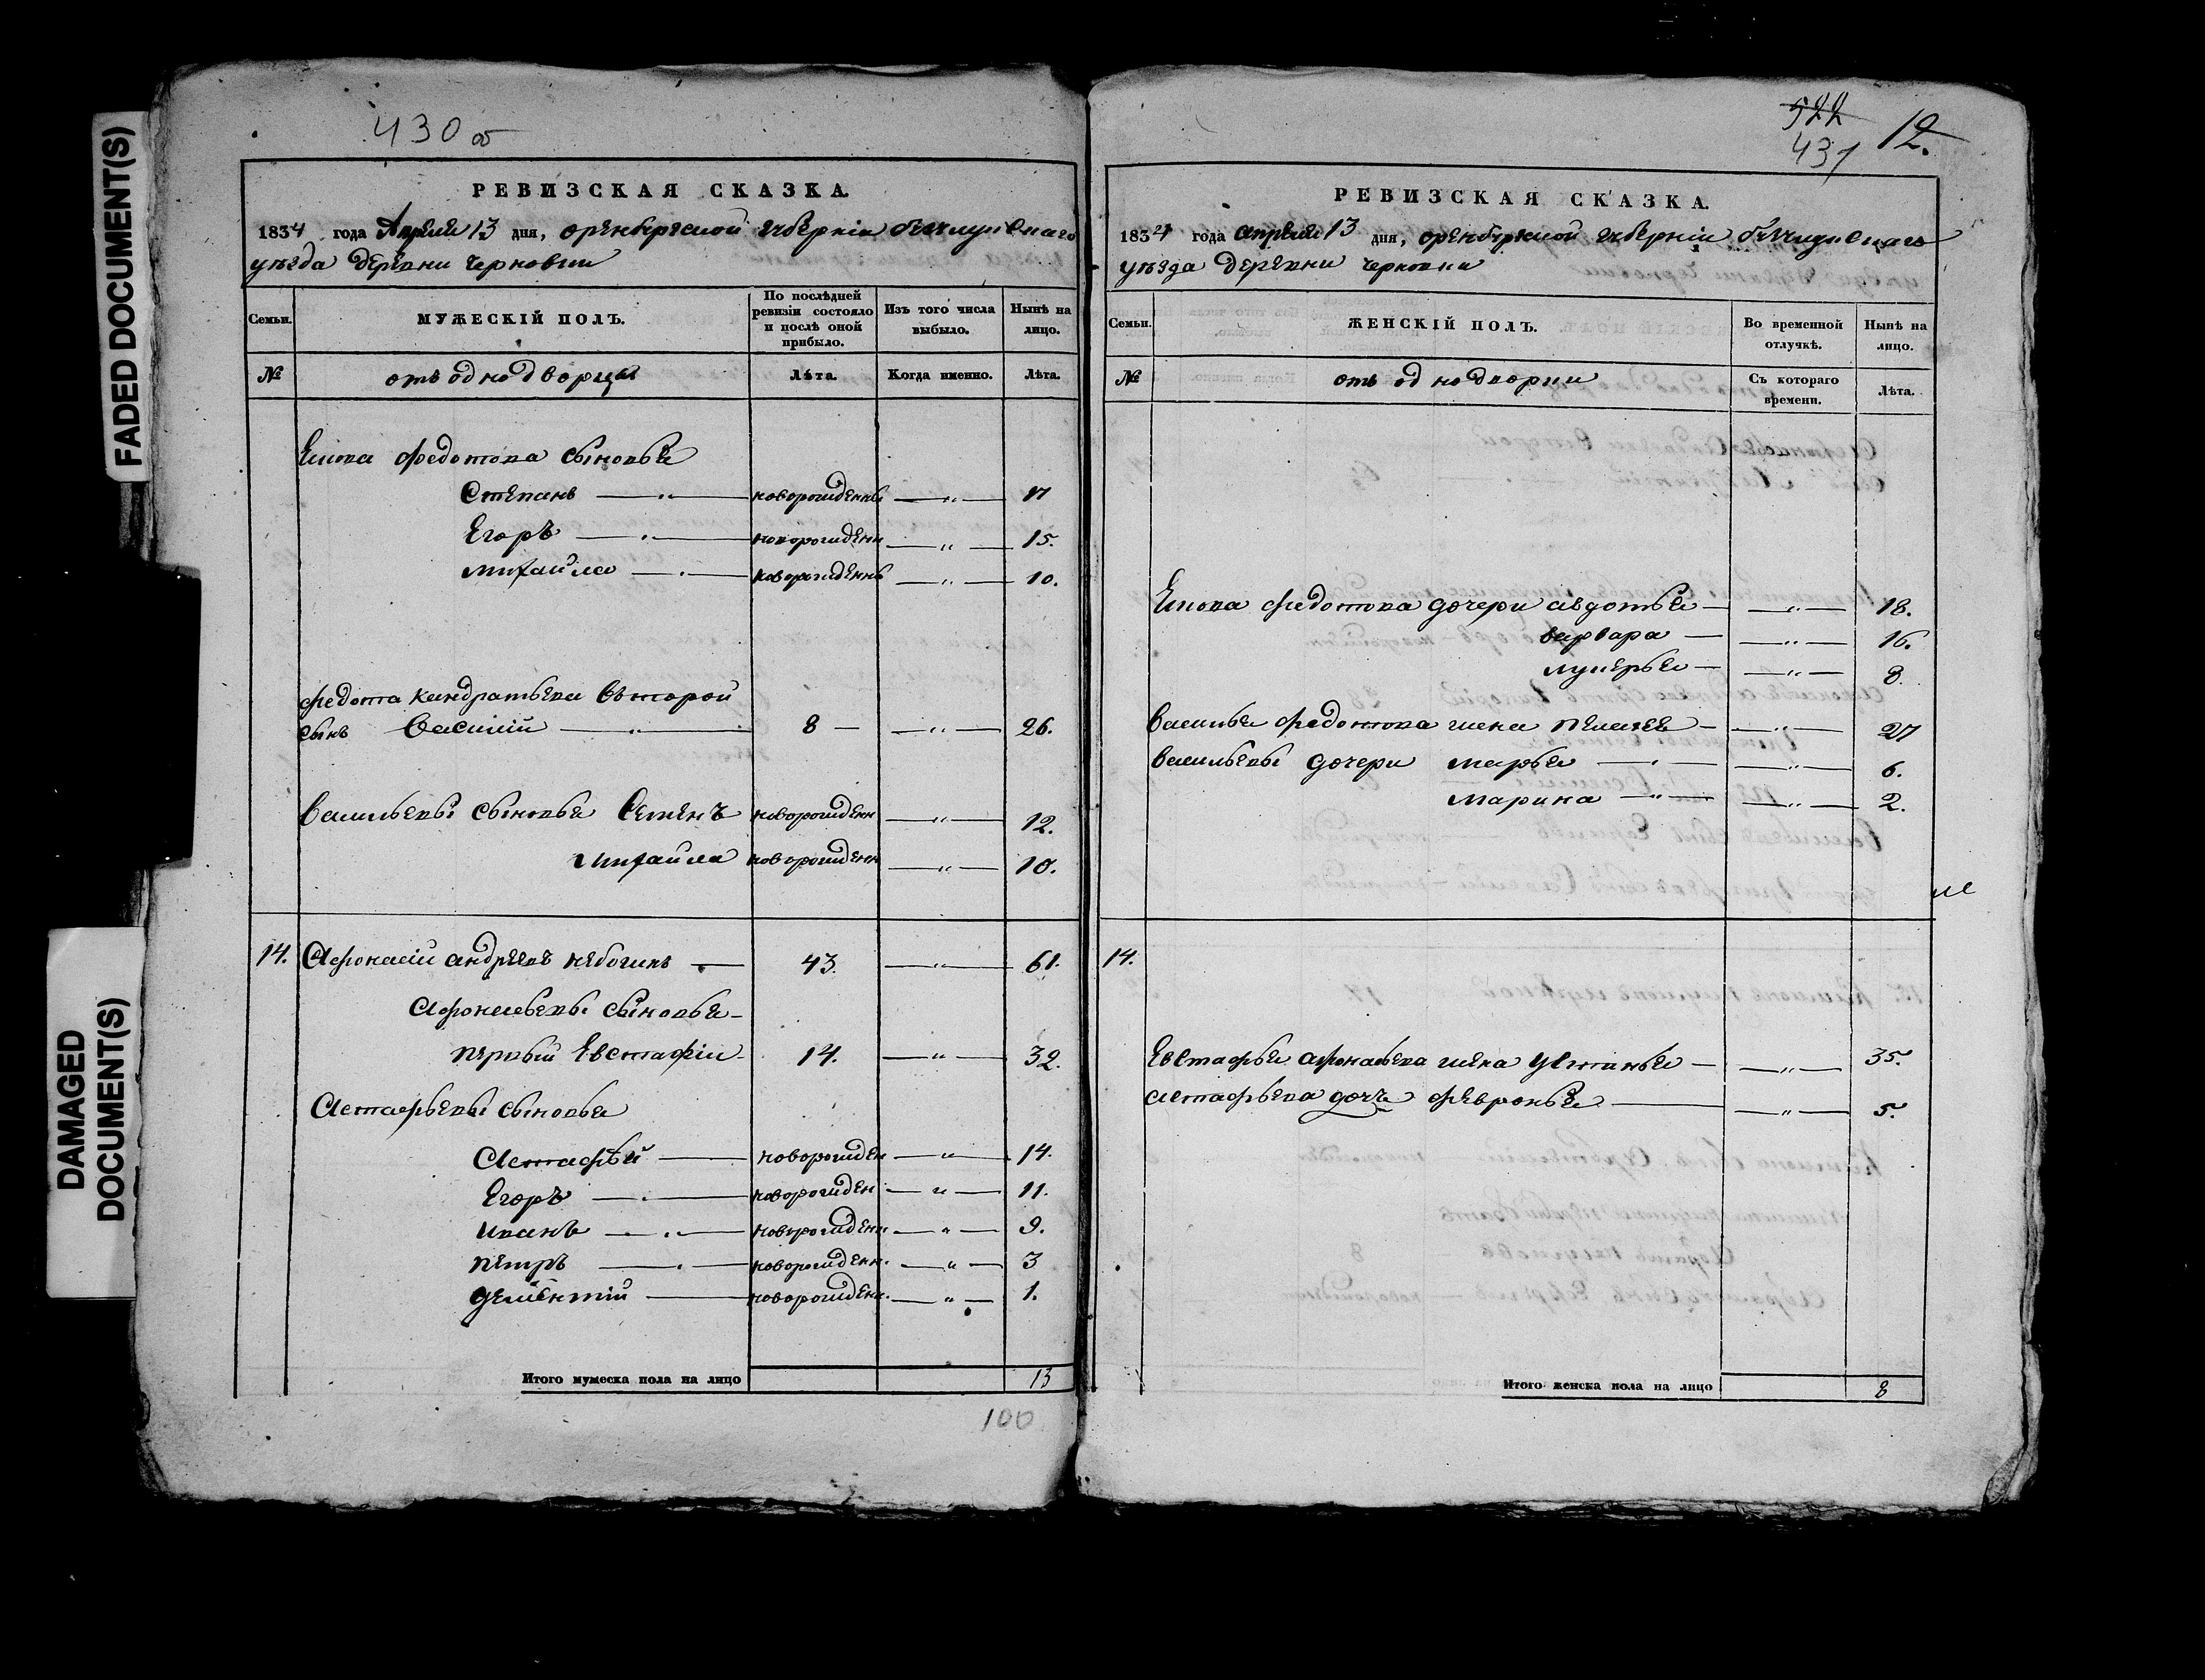 FADED DOCUMENT(S)
DAMAGED
DOCUMENT(S)
430 об
РЕВИЗСКАЯ СКАЗКА.
1834 года Апреля 13 дня, оренбургской губернии
уѣзда деревни Черновки
Семьи. МУЖЕСКІЙ ПОЛЪ. По послѣдней ревизіи состояло и послѣ оной прибыло. Изъ того числа выбыло. Нынѣ на лицо.
№ отъ однодворцы Лѣта. Когда именно. Лѣта.
Федотова сыновья
Степанъ — новорожденны — " — 17
Егоръ — новорожденн — " — 15.
михайла — новорожденнъ — " — 10.
федота кандратьева второй
сынъ Василий — 8 — — " — 26.
Васильевы сыновья Семенъ новорожденн — " — 12.
михайла новорожденн — " — 10.
14. Афонасий андреевъ — 43. — " — 61.
Афонасьевы сыновья
первый Евстафiй 14. — " — 32.
Астафьевы сыновья
Астафѣй — новорожден — " — 14.
Егоръ — новорожден — " — 11.
иванъ — новорожденн — " — 9.
петръ — новорожденн. — " — 3
дементiй — новорожденн. — " — 1.
Итого мужеска пола на лицо 13
100
522
431
12.
РЕВИЗСКАЯ СКАЗКА.
1834 года апреля 13 дня, оренбургской губернии
уѣзда деревни черновки
Семьи. ЖЕНСКІЙ ПОЛЪ. Во временной отлучкѣ. Нынѣ на лицо.
№ отъ однодворки Съ котораго времени. Лѣта.
федотова дочери авдотья — " — 18.
варвара — " — 16.
лукерья — " — 8.
Василья федотова жена пелагея — " — 27
Васильевы дочери марья — " — 6.
марина — " — 2.
14.
Евстафья афонасьева жена устинья — " — 35.
астафьева дочь февронья — " — 5.
Итого женска пола на лицо 8